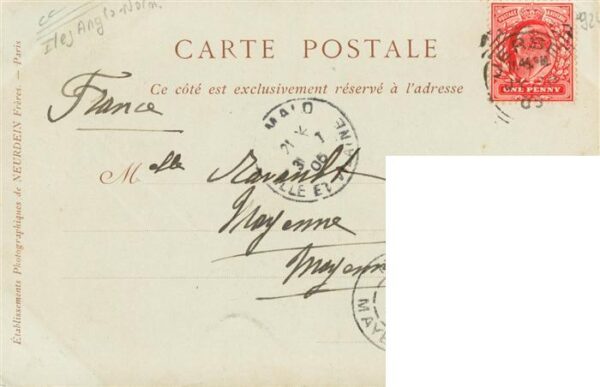 Iles Anglo-Norm.
CARTE POSTALE
Ce côté est exclusivement réservé à l'adresse
France
POSTAGE REVENUE
ONE PENNY
05
MALO
ILLE ET VILAINE
Melle
Mayenne
Mayenn
MAYE
Établissements Photographiques de NEURDEIN Frères. — Paris